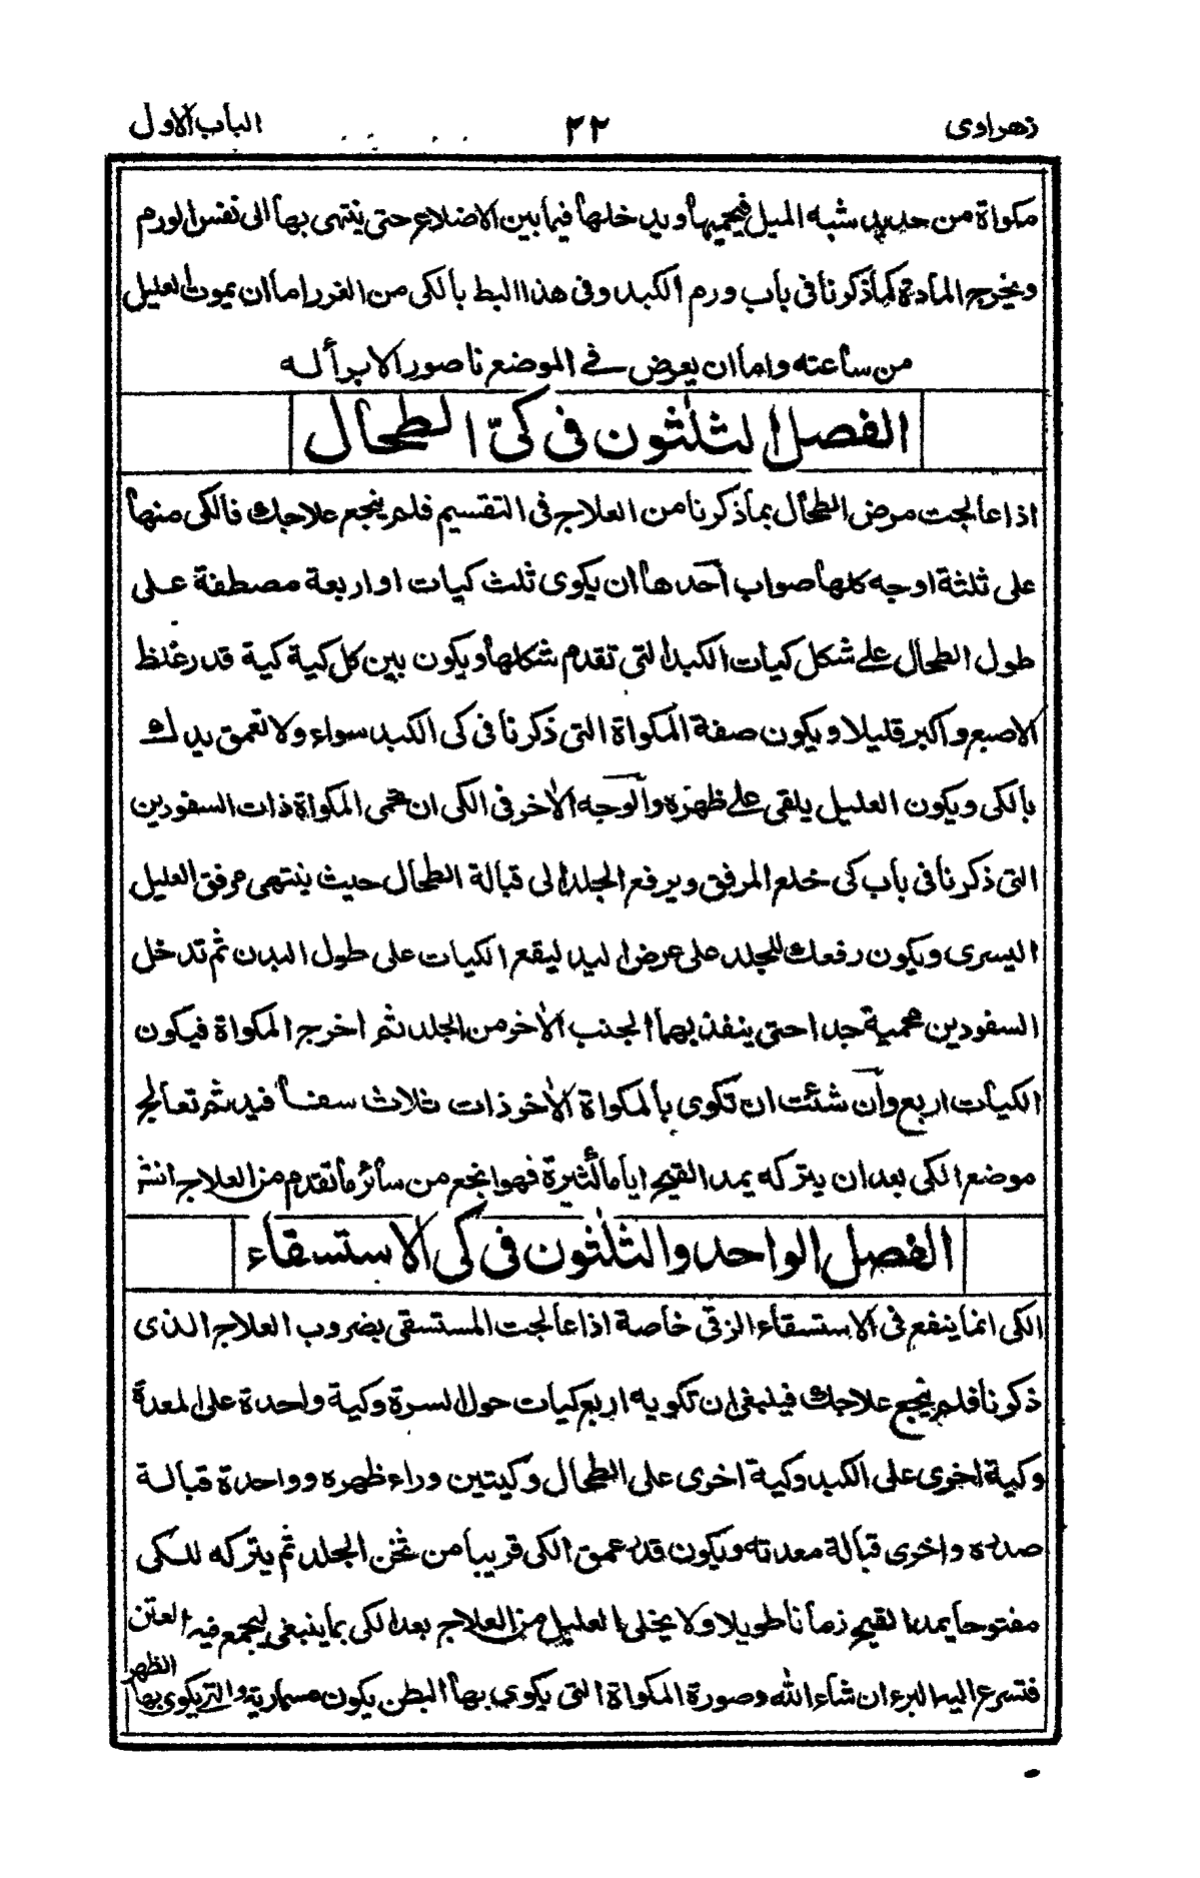 زهراوى
٢٢
الباب الاول
مكواة من حديد شبه الميل فيحميها ويدخلها فيما بين الاضلاع حتى ينتهى بها الى نفس الورم
ويخرج المادة كما ذكرنا فى باب ورم الكبد وفى هذا البط بالكى من الغرر اما ان يموت العليل
من ساعته واما ان يعرض فى الموضع ناصور الا برأ له
الفصل الثلثون فى كىّ الطحال
اذا عالجت مرض الطحال بما ذكرنا من العلاج فى التقسيم فلم ينجع علاجك فالكى منها
على ثلثة اوجه كلها صواب احدها ان يكوى ثلث كيات او اربعة مصطفة على
طول الطحال على شكل كيات الكبد التى تقدم شكلها ويكون بين كل كية كية قدر غلظ
الاصبع واكبر قليلا ويكون صفة المكواة التى ذكرنا فى كى الكبد سواء ولا تعمق يدك
بالكى ويكون العليل يلقى على ظهره والوجه الاخر فى الكى ان تحمى المكواة ذات السفودين
التى ذكرنا فى باب كى خلع المرفق ويرفع الجلد الى قبالة الطحال حيث ينتهى مرفق العليل
اليسرى ويكون رفعك للجلد على عرض اليد ليقع الكيات على طول البدن ثم تدخل
السفودين محمية جدا حتى ينفذ بهما الجنب الاخر من الجلد ثم اخرج المكواة فيكون
الكيات اربع وان شئت ان تكوى بالمكواة الاخر ذات ثلاث سفافيد ثم تعالج
موضع الكى بعد ان يتركه يمد القيح اياما كثيرة فهو انجع من سائر ما تقدم من العلاج انشر
الفصل الواحد والثلثون فى كى الاستسقاء
الكى انما ينفع فى الاستسقاء الزقى خاصة اذا عالجت المستسقى بضروب العلاج الذى
ذكرنا فلم ينجع علاجك فينبغى ان تكويه اربع كيات حول السرة وكية واحدة على المعدة
وكية اخرى على الكبد وكية اخرى على الطحال وكيتين وراء ظهره وواحدة قبالة
صدره واخرى قبالة معدته ويكون قدر عمق الكى قريبا من ثخن الجلد ثم يتركه للكى
مفتوحا يمد القيح زمانا طويلا ولا يخلى العليل من العلاج بعد الكى بما ينبغى ليجمع فيه العتن
فتسرع اليه البرء ان شاء الله وصورة المكواة التى يكوى بها البطن يكون مسمارية والتى يكوى بها
الظهر